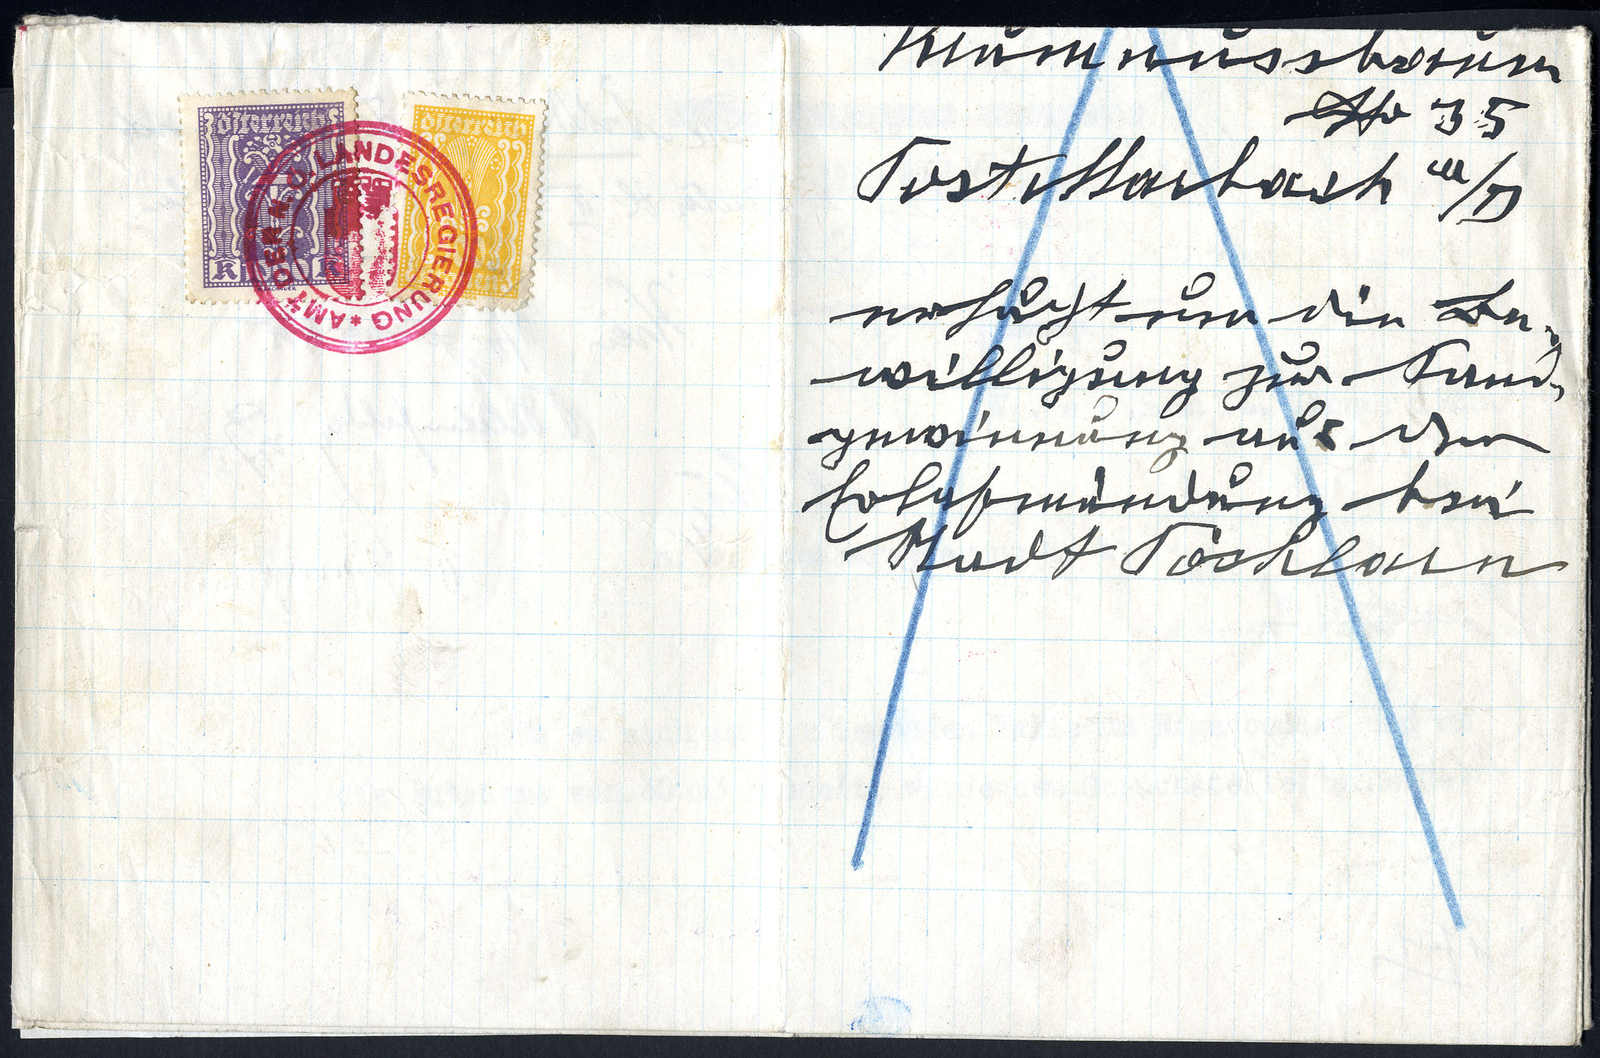 österreich
österreich
AMT DER N.Ö. LANDESREGIERUNG *
K K
Klumnussbaum
No 35
Post Marbach a/D
ersucht um die Be-
willigung zur Sand-
gewinnung aus der
Erlafmündung bei
Stadt Pöchlarn